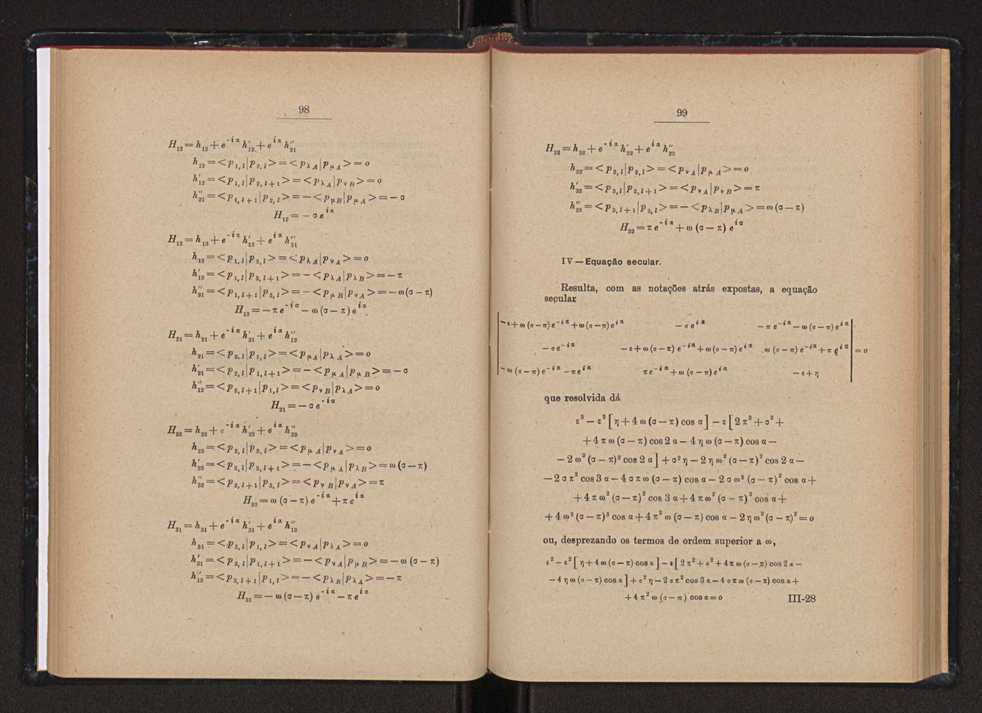 98
H₁₂ = h₁₂ + e^{-iα} h′₁₂ + e^{iα} h″₂₁
h₁₂ = <p₁,ₗ|p₂,ₗ> = <p_{λA}|p_{μA}> = o
h′₁₂ = <p₁,ₗ|p₂,ₗ₊₁> = <p_{λA}|p_{νB}> = o
h″₂₁ = <p₁,ₗ₊₁|p₂,ₗ> = −<p_{μB}|p_{μA}> = −σ
H₁₂ = −σe^{iα}
H₁₃ = h₁₃ + e^{-iα} h′₁₃ + e^{iα} h″₃₁
h₁₃ = <p₁,ₗ|p₃,ₗ> = <p_{λA}|p_{νA}> = o
h′₁₃ = <p₁,ₗ|p₃,ₗ₊₁> = −<p_{λA}|p_{λB}> = −π
h″₃₁ = <p₁,ₗ₊₁|p₃,ₗ> = −<p_{μB}|p_{νA}> = −ω(σ−π)
H₁₃ = −πe^{-iα} − ω(σ−π)e^{iα}
H₂₁ = h₂₁ + e^{-iα} h′₂₁ + e^{iα} h″₁₂
h₂₁ = <p₂,ₗ|p₁,ₗ> = <p_{μA}|p_{λA}> = o
h′₂₁ = <p₂,ₗ|p₁,ₗ₊₁> = −<p_{μA}|p_{μB}> = −σ
h″₁₂ = <p₂,ₗ₊₁|p₁,ₗ> = <p_{νB}|p_{λA}> = o
H₂₁ = −σe^{-iα}
H₂₃ = h₂₃ + e^{-iα} h′₂₃ + e^{iα} h″₃₂
h₂₃ = <p₂,ₗ|p₃,ₗ> = <p_{μA}|p_{νA}> = o
h′₂₃ = <p₂,ₗ|p₃,ₗ₊₁> = −<p_{μA}|p_{λB}> = ω(σ−π)
h″₃₂ = <p₂,ₗ₊₁|p₃,ₗ> = <p_{νB}|p_{νA}> = π
H₂₃ = ω(σ−π)e^{-iα} + πe^{iα}
H₃₁ = h₃₁ + e^{-iα} h′₃₁ + e^{iα} h″₁₃
h₃₁ = <p₃,ₗ|p₁,ₗ> = <p_{νA}|p_{λA}> = o
h′₃₁ = <p₃,ₗ|p₁,ₗ₊₁> = −<p_{νA}|p_{μB}> = −ω(σ−π)
h″₁₃ = <p₃,ₗ₊₁|p₁,ₗ> = −<p_{λB}|p_{λA}> = −π
H₃₁ = −ω(σ−π)e^{-iα} − πe^{iα}
99
H₃₂ = h₃₂ + e^{-iα} h′₃₂ + e^{iα} h″₂₃
h₃₂ = <p₃,ₗ|p₂,ₗ> = <p_{νA}|p_{μA}> = o
h′₃₂ = <p₃,ₗ|p₂,ₗ₊₁> = <p_{νA}|p_{νB}> = π
h″₂₃ = <p₃,ₗ₊₁|p₂,ₗ> = −<p_{λB}|p_{μA}> = ω(σ−π)
H₃₂ = πe^{-iα} + ω(σ−π) e^{iα}
IV — Equação secular.
Resulta, com as notações atrás expostas, a equação
secular
−ε+ω(σ−π)e^{-iα}+ω(σ−π)e^{iα} −σe^{iα} −πe^{-iα}−ω(σ−π)e^{iα}
−σe^{-iα} −ε+ω(σ−π)e^{-iα}+ω(σ−π)e^{iα} ω(σ−π)e^{-iα}+πe^{iα} = o
−ω(σ−π)e^{-iα}−πe^{iα} πe^{-iα}+ω(σ−π)e^{iα} −ε+η
que resolvida dá
ε³ − ε²[η + 4ω(σ−π) cos α] − ε[2π² + σ² +
+ 4πω(σ−π) cos 2α − 4ηω(σ−π) cos α −
− 2ω²(σ−π)² cos 2α] + σ²η − 2ηω²(σ−π)² cos 2α −
− 2σπ² cos 3α − 4σπω(σ−π) cos α − 2σω²(σ−π)² cos α +
+ 4πω²(σ−π)² cos 3α + 4πω²(σ−π)² cos α +
+ 4ω³(σ−π)³ cos α + 4π²ω(σ−π) cos α − 2ηω²(σ−π)² = o
ou, desprezando os termos de ordem superior a ω,
ε³ − ε²[η + 4ω(σ−π) cos α] − ε[2π² + σ² + 4πω(σ−π) cos 2α −
− 4ηω(σ−π) cos α] + σ²η − 2σπ² cos 3α − 4σπω(σ−π) cos α +
+ 4π²ω(σ−π) cos α = o
III-28